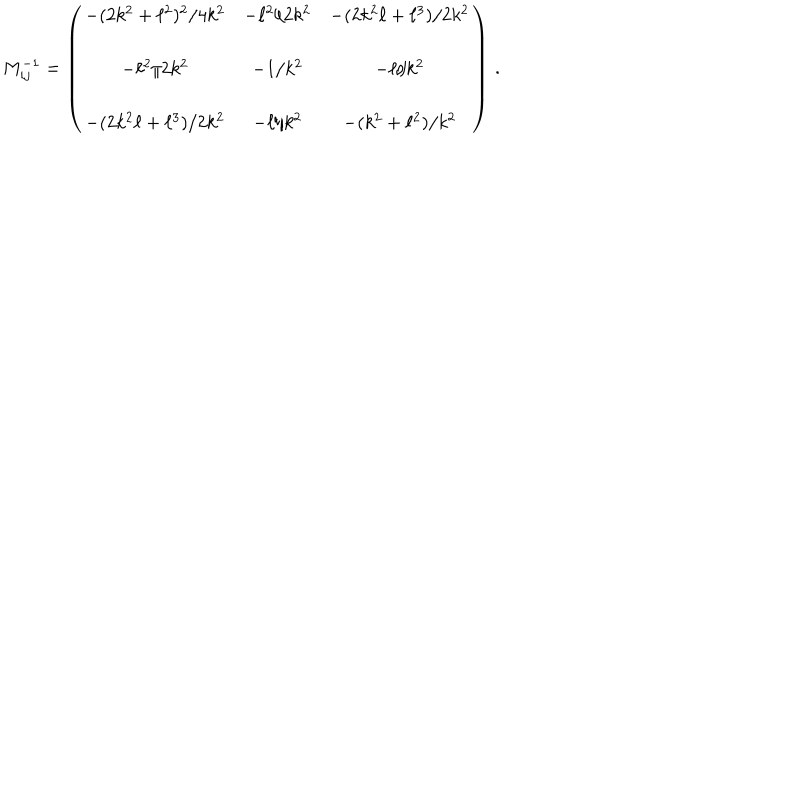 M_{ij}^{-1} = \begin{pmatrix} -(2k^2+\ell^2)^2/4k^2 & -\ell^2/2k^2 & -(2k^2\ell+\ell^3)/2k^2 \\ -\ell^2/2k^2 & -1/k^2 & -\ell/k^2 \\ -(2k^2\ell+\ell^3)/2k^2 & -\ell/k^2 & -(k^2+\ell^2)/k^2 \end{pmatrix} .